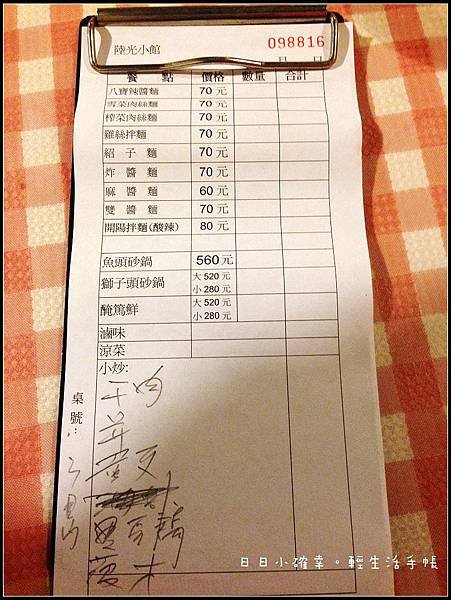 陸光小館
098816
月 日
餐 點 價格 數量 合計
八寶辣醬麵 70元
雪菜肉絲麵 70元
榨菜肉絲麵 70元
雞絲拌麵 70元
紹子麵 70元
炸醬麵 70元
麻醬麵 60元
雙醬麵 70元
開陽拌麵(酸辣) 80元
魚頭砂鍋 560元
獅子頭砂鍋 大520元
小280元
醃篤鮮 大520元
小280元
滷味
涼菜
小炒:
桌號:
日日小確幸。輕生活手帳